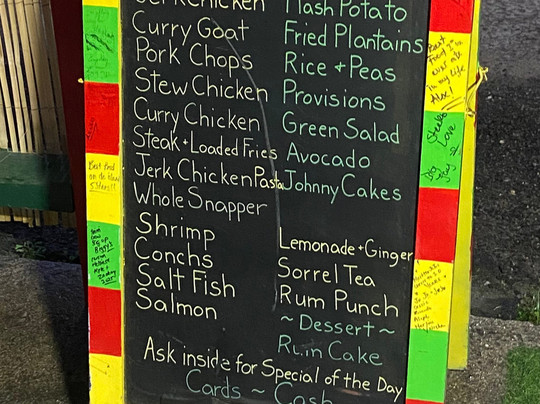 Jerk Chicken
Curry Goat
Pork Chops
Stew Chicken
Curry Chicken
Steak + Loaded Fries
Jerk Chicken Pasta
Whole Snapper
Shrimp
Conchs
Salt Fish
Salmon
Mash Potato
Fried Plantains
Rice + Peas
Provisions
Green Salad
Avocado
Johnny Cakes
Lemonade + Ginger
Sorrel Tea
Rum Punch
~ Dessert ~
Rum Cake
Ask inside for Special of the Day
Cards ~ Cash
Best
in my life
Love